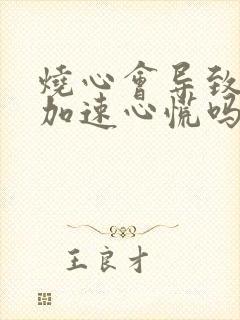 烧心會导致
加速心慌吗
王良才